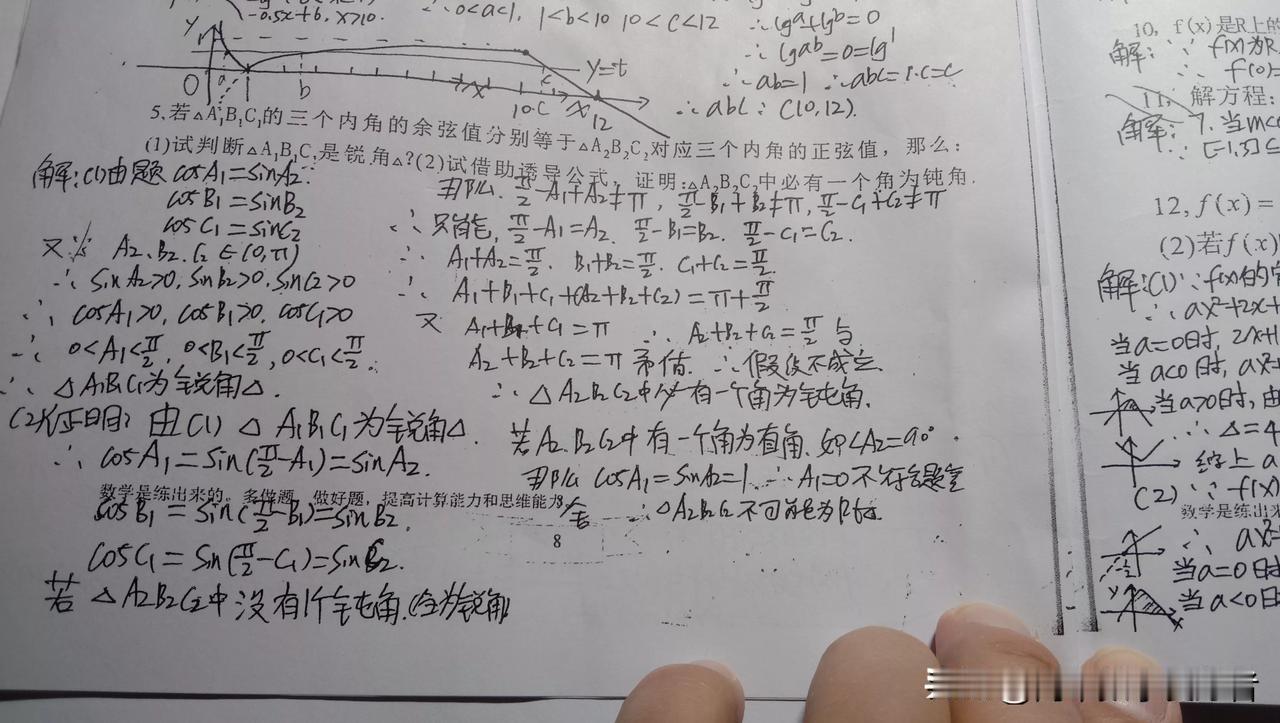 -0.5x+6, x>10.
∴ 0<a<1, 1<b<10 10<c<12
∴ lga+lgb=0
∴ lgab=0=lg1
∴ ab=1 ∴ abc=1·c=c
∴ abc: (10,12).
y
1
y=t
O a 1 b x 10 c x 12
5.若△A₁B₁C₁的三个内角的余弦值分别等于△A₂B₂C₂对应三个内角的正弦值，那么：
(1)试判断△A₁B₁C₁是锐角△?(2)试借助诱导公式，证明:△A₂B₂C₂中必有一个角为钝角.
解:(1)由题 cosA₁=sinA₂.
cosB₁=sinB₂
cosC₁=sinC₂
又∵ A₂、B₂、C₂∈(0,π)
∴ sinA₂>0, sinB₂>0, sinC₂>0
∴ cosA₁>0, cosB₁>0, cosC₁>0
∴ 0<A₁<π/2, 0<B₁<π/2, 0<C₁<π/2.
∴ △A₁B₁C₁为锐角△.
(2)证明: 由(1) △A₁B₁C₁为锐角△.
∴ cosA₁=sin(π/2-A₁)=sinA₂.
数学是练出来的。多做题，做好题，提高计算能力和思维能力
cosB₁=sin(π/2-B₁)=sinB₂.
cosC₁=sin(π/2-C₁)=sinC₂.
若 △A₂B₂C₂中没有1个钝角.(全为锐角)
那么. π/2-A₁+A₂≠π, π/2-B₁+B₂≠π, π/2-C₁+C₂≠π
∴ 只能, π/2-A₁=A₂. π/2-B₁=B₂. π/2-C₁=C₂.
∴ A₁+A₂=π/2. B₁+B₂=π/2. C₁+C₂=π/2.
∴ A₁+B₁+C₁+(A₂+B₂+C₂)=π+π/2
又 A₁+B₁+C₁=π ∴ A₂+B₂+C₂=π/2 与
A₂+B₂+C₂=π 矛盾. ∴ 假设不成立.
∴ △A₂B₂C₂中必有一个角为钝角.
若A₂、B₂、C₂中有一个角为直角.如∠A₂=90°.
那么 cosA₁=sinA₂=1 ∴ A₁=0 不符合题意
舍 ∴ △A₂B₂C₂不可能为Rt△
8
10, f(x)是R上的
解: ∵ f(x)为R
∴ f(0)=
11, 解方程:
解: 7. 当m<
∴ [-1,3]⊆
12, f(x)=
(2)若f(x)
解:(1) ∵ f(x)的
∴ ax²+2x+
当a=0时, 2x+1
当a<0时, ax²+
当a>0时, 由
∴ △=4
综上 a
(2) ∵ f(x)
数学是练出来
∴ ax²
当a=0时
当a<0时